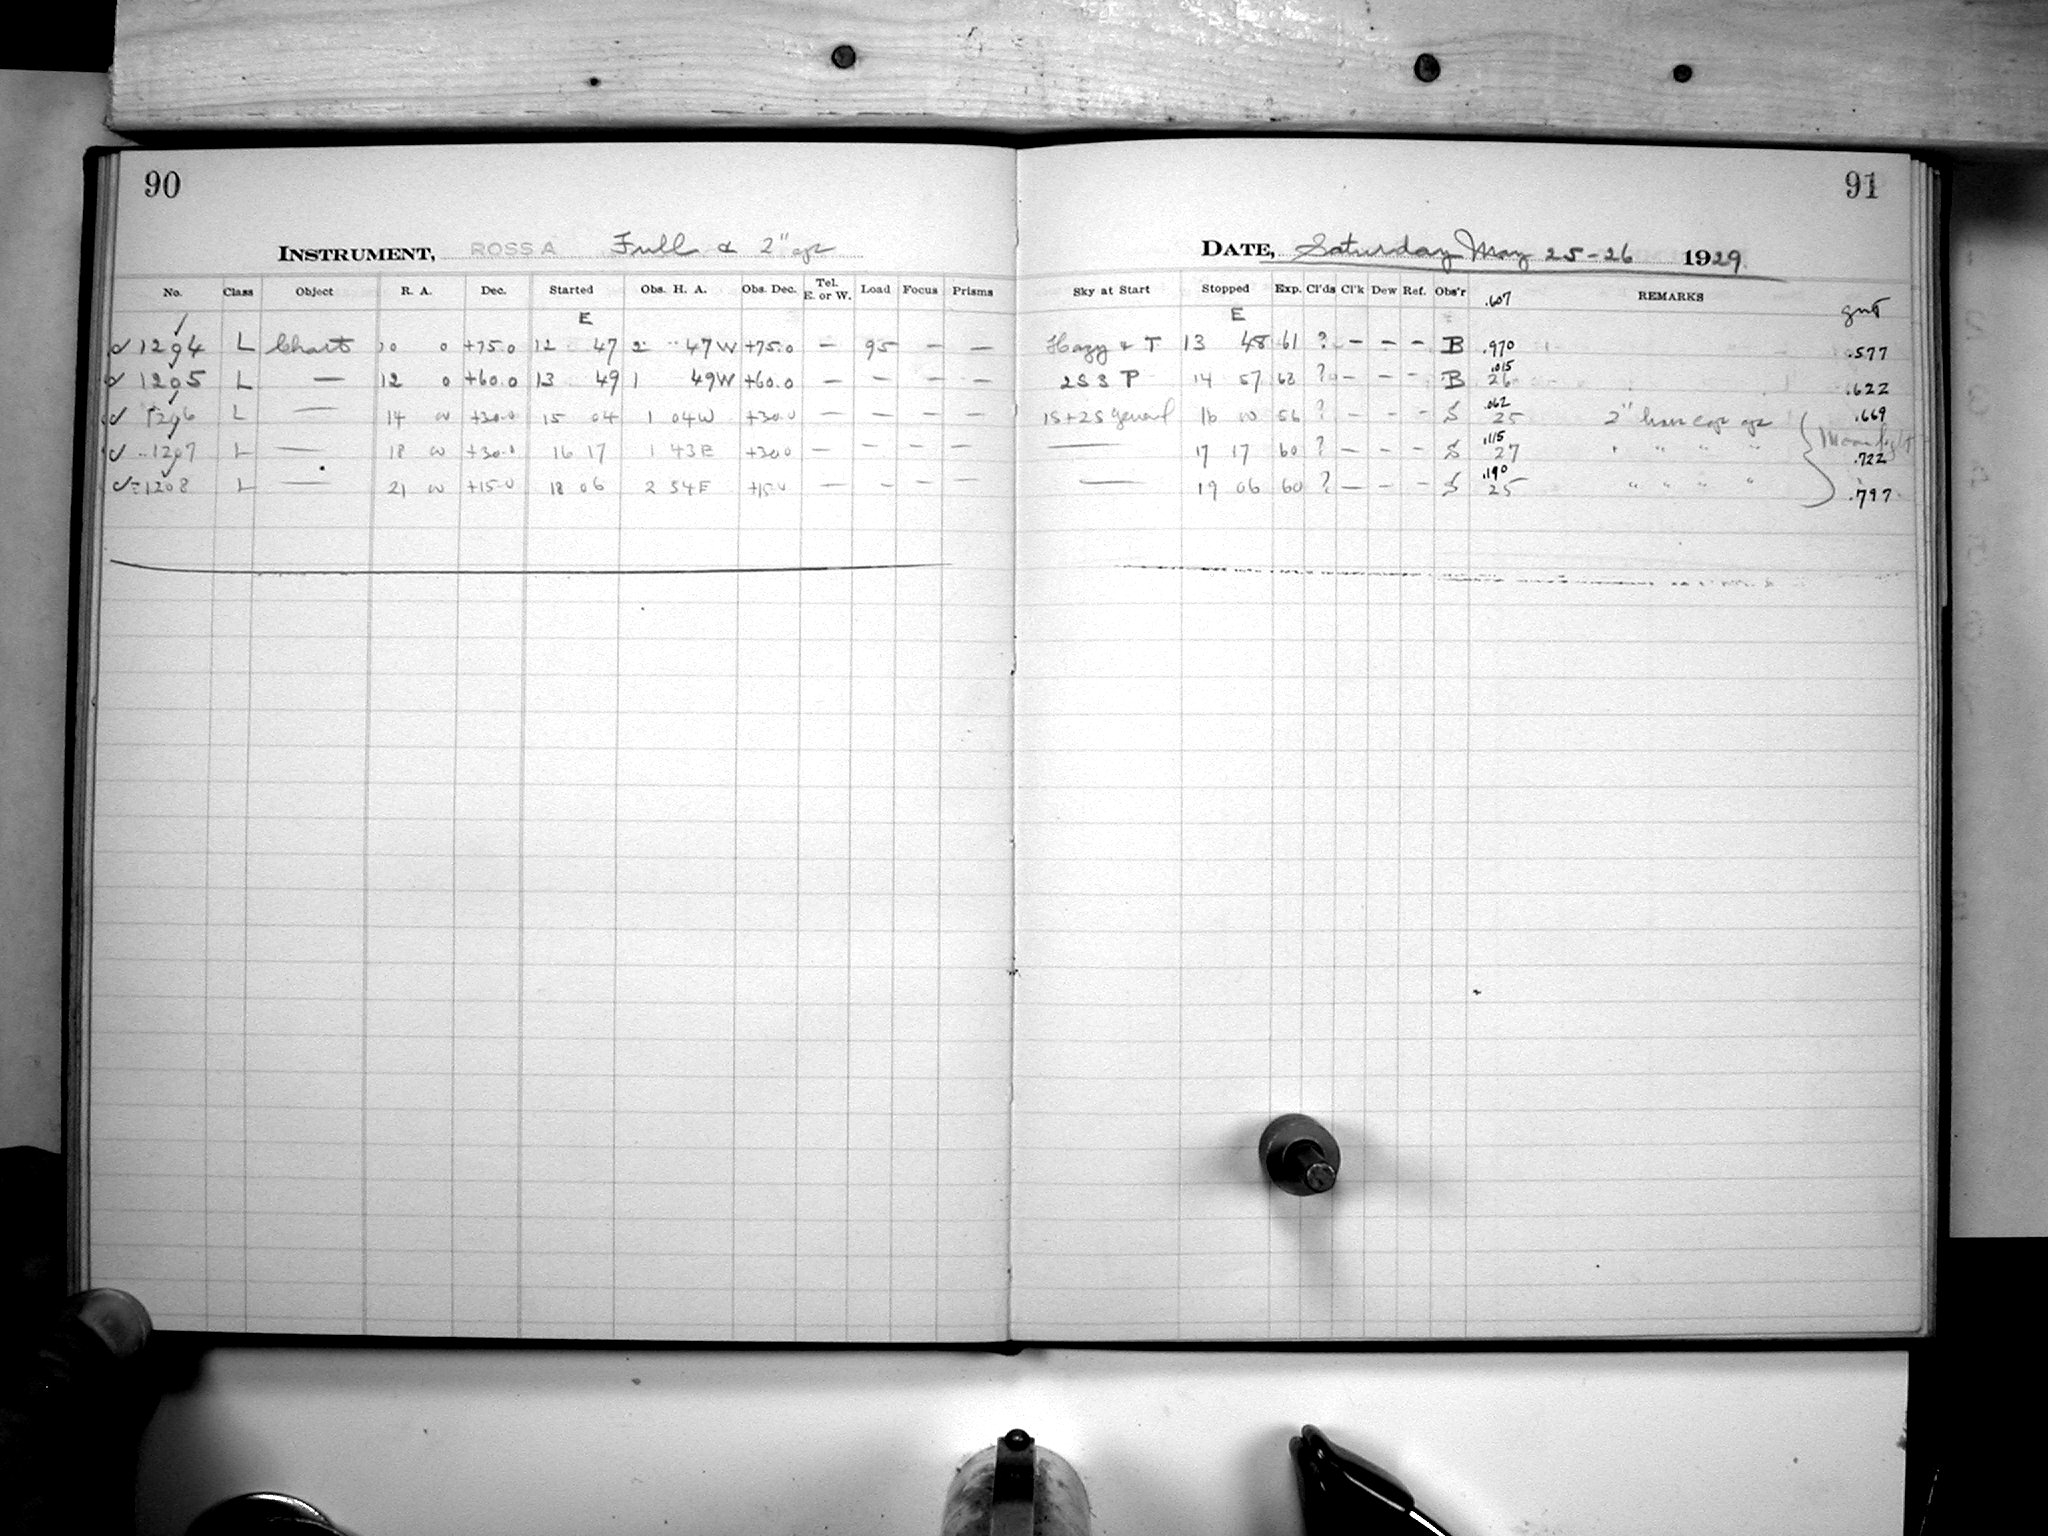 90
INSTRUMENT, ROSS A Full & 2" ap
No. Class Object R. A. Dec. Started Obs. H. A. Obs. Dec. Tel. E. or W. Load Focus Prisms
E
1294 L Chart 10 0 +75.0 12 47 2 47W +75.0 — 95 — —
1295 L — 12 0 +60.0 13 49 1 49W +60.0 — — — —
1296 L — 14 0 +30.0 15 04 1 04W +30.0 — — — —
1297 L — 18 0 +30.0 16 17 1 43E +30.0 — — — —
1298 L — 21 0 +15.0 18 06 2 54E +15.0 — — — —
91
DATE, Saturday May 25-26 1929
Sky at Start Stopped Exp. Cl'ds Cl'k Dew Ref. Obs'r .607 REMARKS gmt
E
Hazy & T 13 48 61 ? — — — B .970 .577
2S3 P 14 57 68 ? — — — B .015 26 .622
1S+2S general 16 00 56 ? — — — S .062 25 2" ap .669
— 17 17 60 ? — — — S .115 27 " " " " Moonlight .722
— 19 06 60 ? — — — S .190 25 " " " " .797